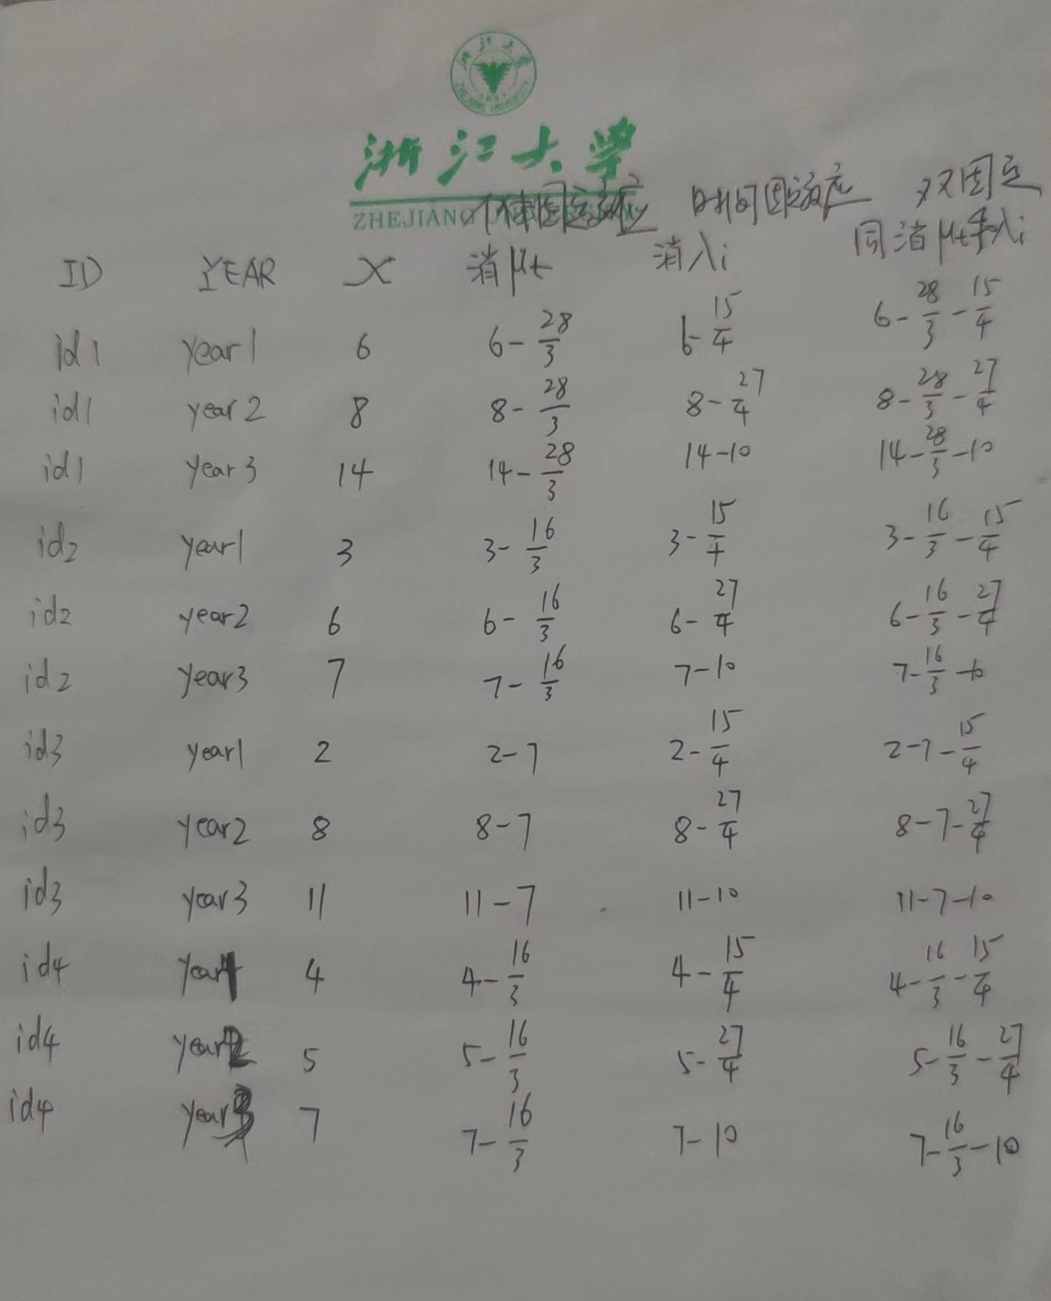 浙江大学
ZHEJIANG UNIVERSITY
个体固定效应 时间固定效应 双固定
ID YEAR X 消μt 消λi 同消μt和λi
id1 year1 6 6-28/3 6-15/4 6-28/3-15/4
id1 year2 8 8-28/3 8-27/4 8-28/3-27/4
id1 year3 14 14-28/3 14-10 14-28/3-10
id2 year1 3 3-16/3 3-15/4 3-16/3-15/4
id2 year2 6 6-16/3 6-27/4 6-16/3-27/4
id2 year3 7 7-16/3 7-10 7-16/3-10
id3 year1 2 2-7 2-15/4 2-7-15/4
id3 year2 8 8-7 8-27/4 8-7-27/4
id3 year3 11 11-7 11-10 11-7-10
id4 year1 4 4-16/3 4-15/4 4-16/3-15/4
id4 year2 5 5-16/3 5-27/4 5-16/3-27/4
id4 year3 7 7-16/3 7-10 7-16/3-10